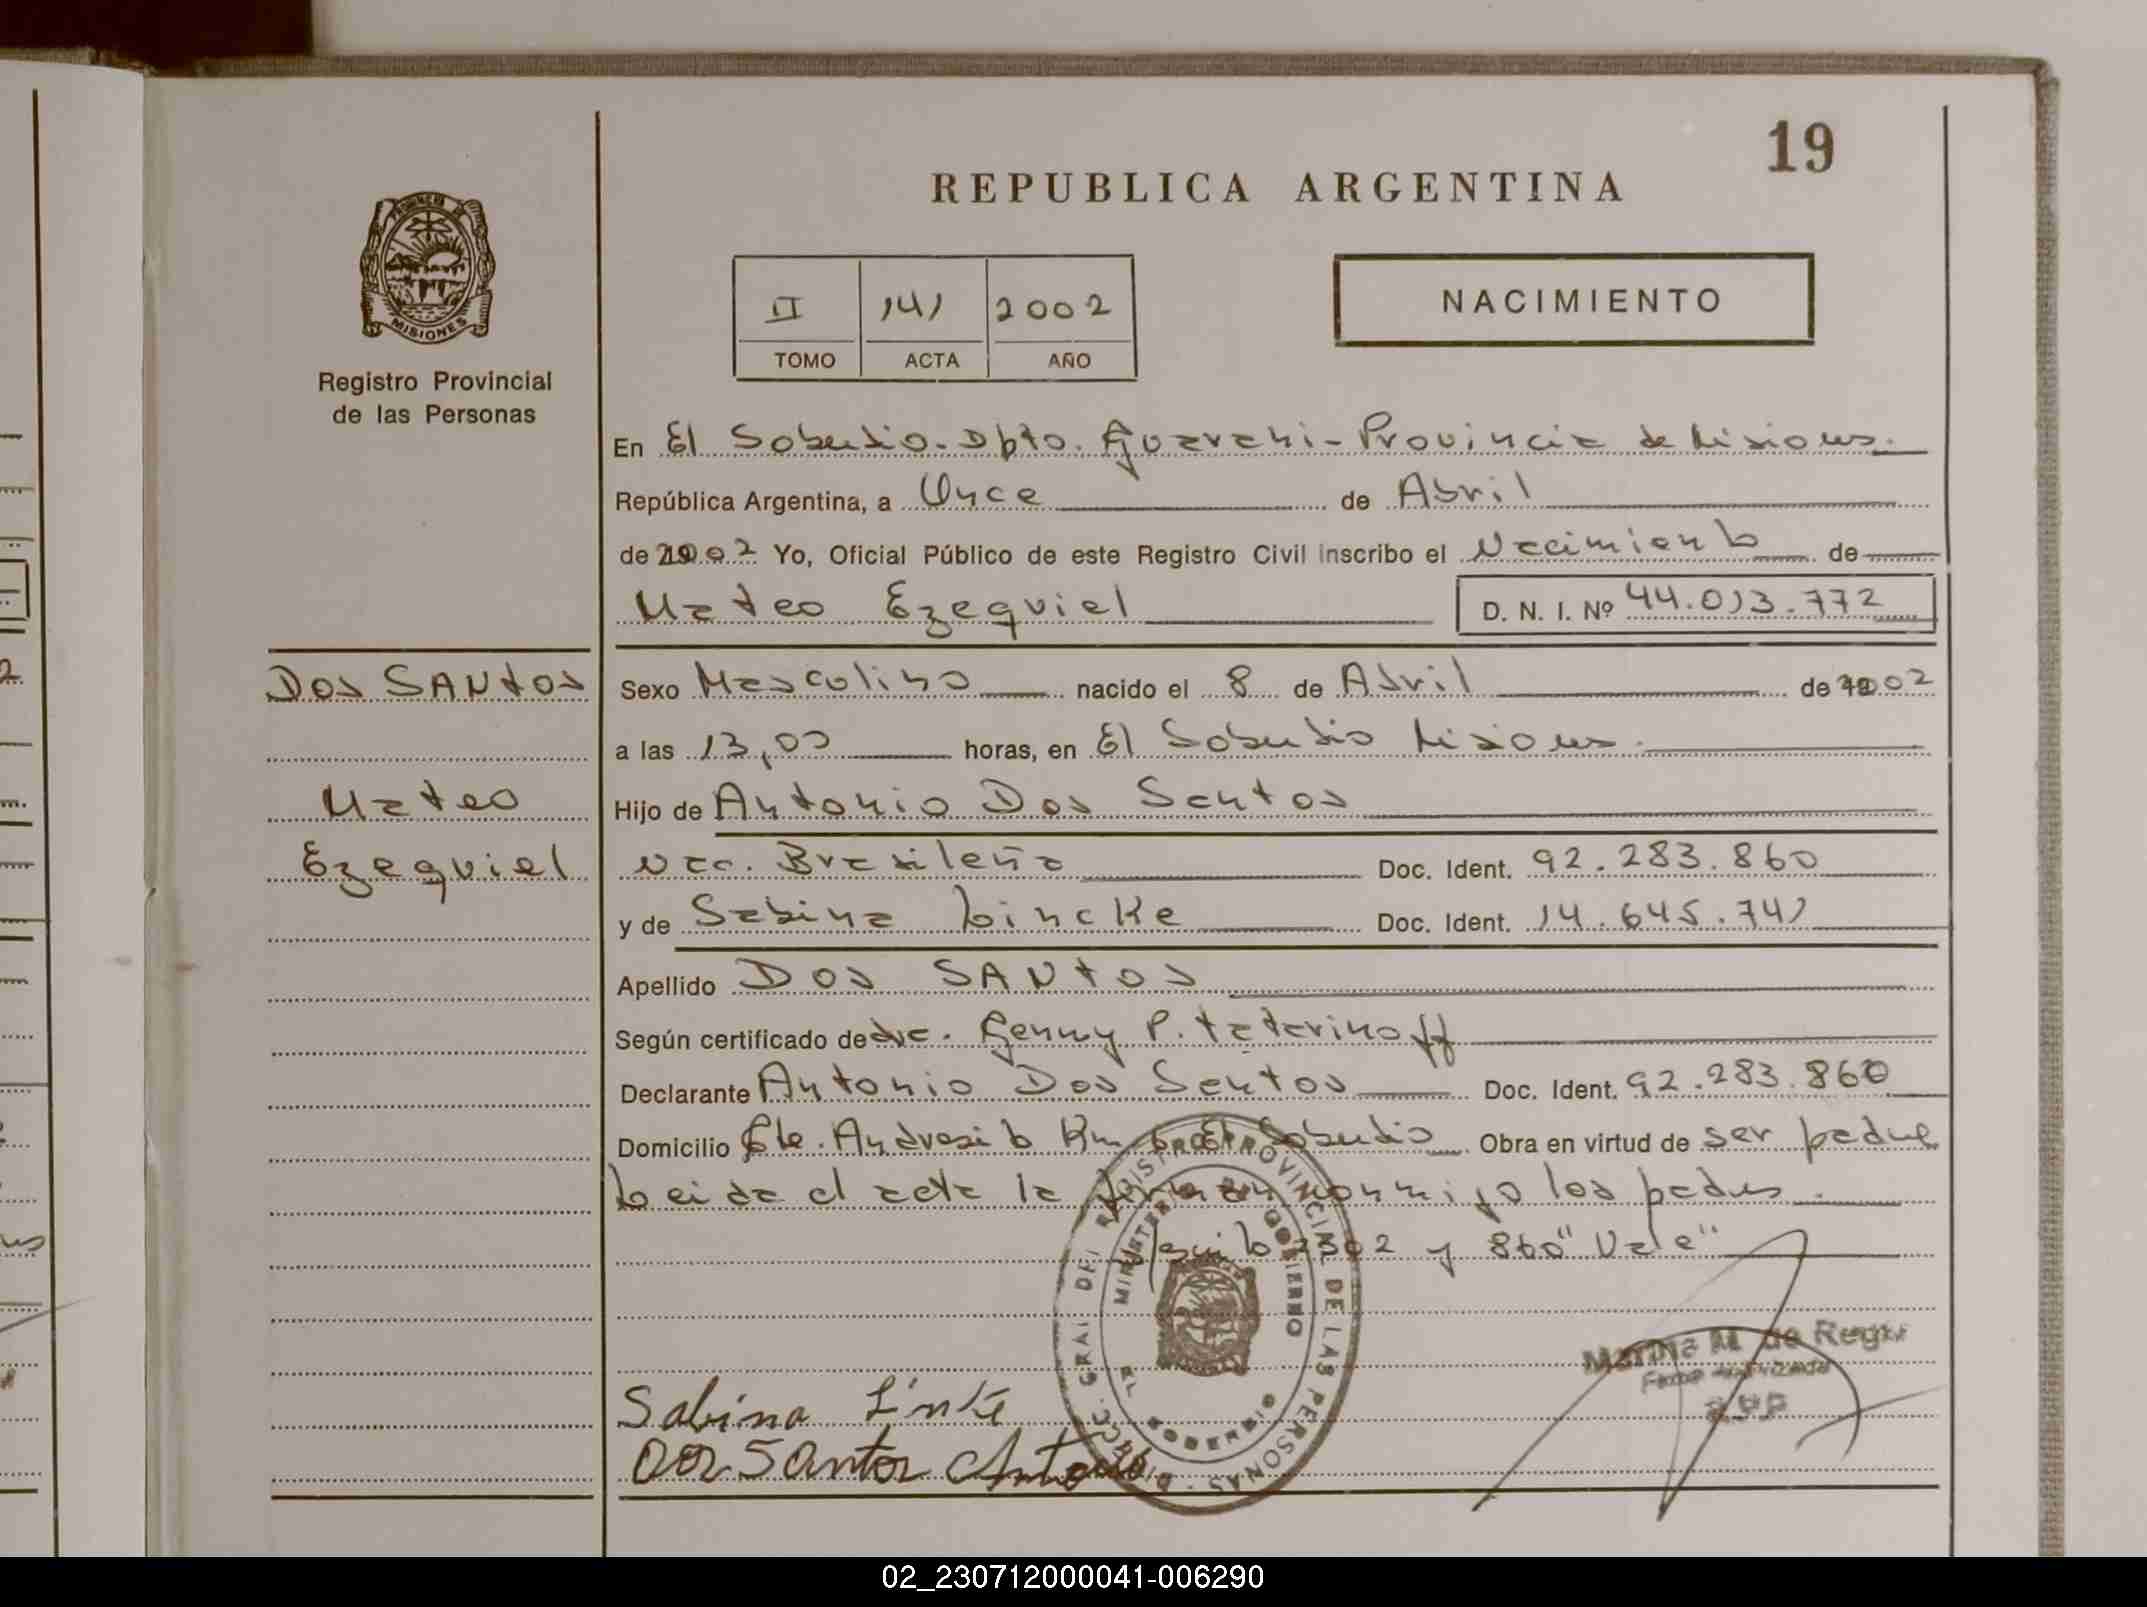 19
REPUBLICA ARGENTINA
II 141 2002
TOMO ACTA AÑO
NACIMIENTO
PROVINCIA DE
MISIONES
Registro Provincial
de las Personas
En El Soberbio - Dpto. Guarani - Provincia de Misiones.
República Argentina, a Once de Abril
de 2002 Yo, Oficial Público de este Registro Civil inscribo el Nacimiento de
Mateo Ezequiel D. N. I. Nº 44.013.772
DOS SANTOS
Mateo
Ezequiel
Sexo Masculino nacido el 8 de Abril de 2002
a las 13,00 horas, en El Soberbio Misiones.
Hijo de Antonio Dos Santos
Nac. Brasileña Doc. Ident. 92.283.860
y de Sabina Lincke Doc. Ident. 14.645.741
Apellido DOS SANTOS
Según certificado de dra. Genny P. Tatarinoff
Declarante Antonio Dos Santos Doc. Ident. 92.283.860
Domicilio Cte. Andresito Km 6 El Soberbio Obra en virtud de ser padre
Leida el acta la firman conmigo los padres.
2002 y 860" Vale"
DIRECC. GRAL DEL REGISTRO PROVINCIAL DE LAS PERSONAS
MINISTERIO DE GOBIERNO
EL SOBERBIO
Marina M. de Reggi
Firma Autorizada
RPP
Sabina Linke
Dos Santos Antonio
02_230712000041-006290